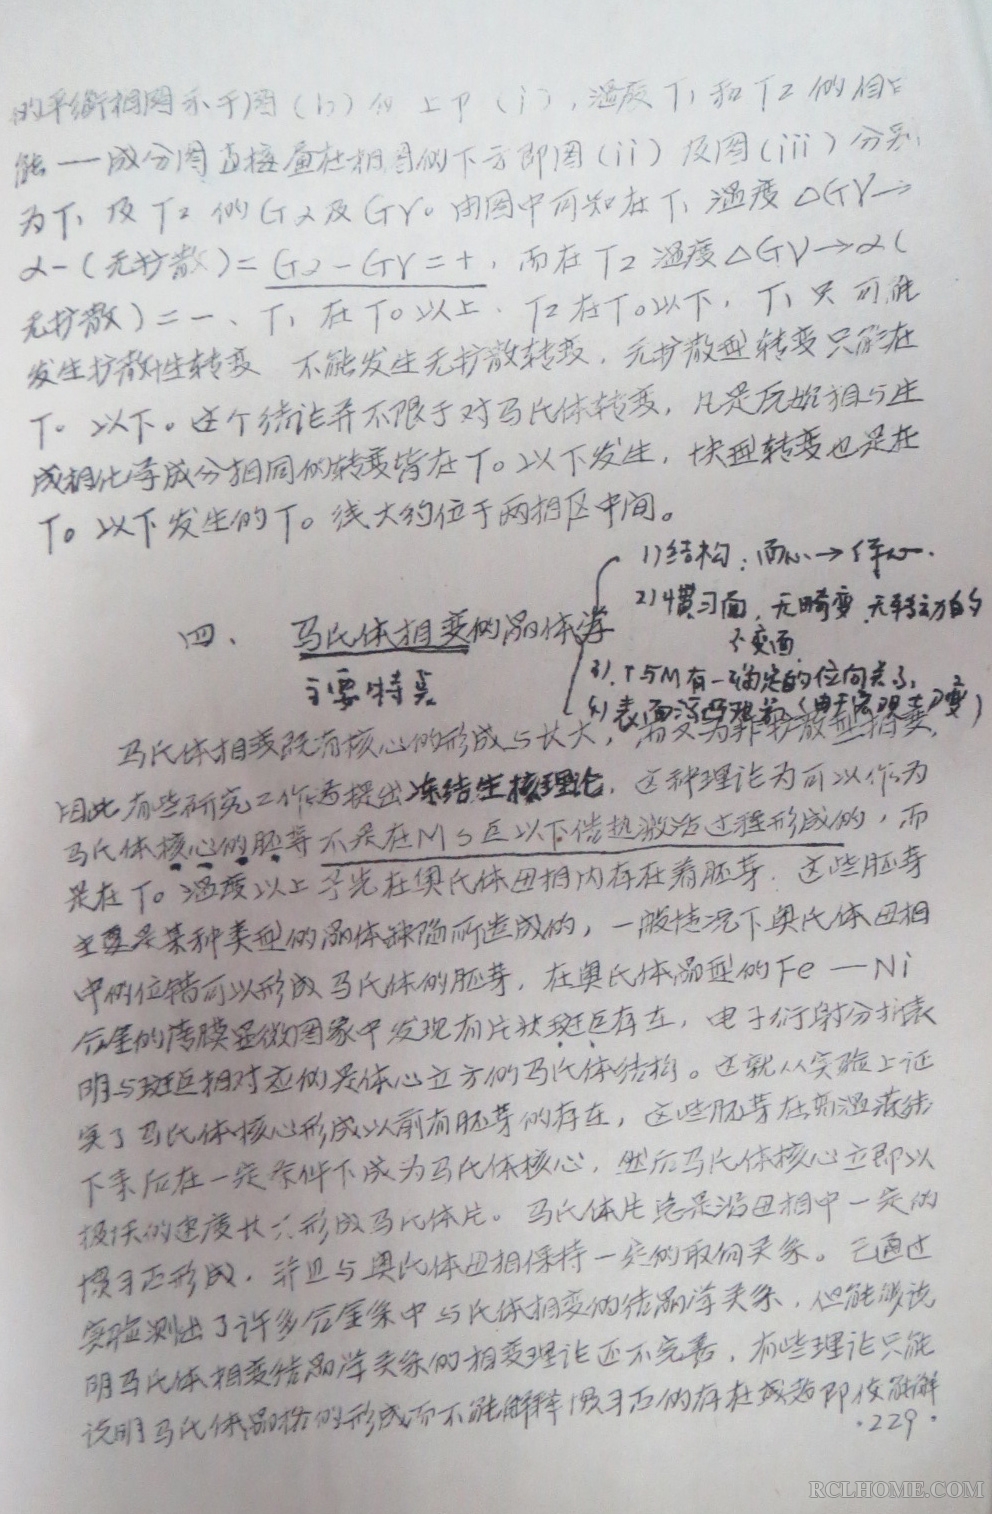 的平衡相图示于图(b)的上中(i),温度T1和T2的自由
能——成分图直接画在相图的下方即图(ii)及图(iii)分别
为T1及T2的Gα及Gγ。由图中可知在T1温度△Gγ→
α-(无扩散)=Gα-Gγ=+,而在T2温度△Gγ→α(
无扩散)=一、T1在T0以上、T2在T0以下,T1只可能
发生扩散性转变 不能发生无扩散转变,无扩散型转变只能在
T。以下。这个结论并不限于对马氏体转变,凡是原始相与生
成相化学成分相同的转变皆在T。以下发生,块型转变也是在
T。以下发生的T。线大约位于两相区中间。
1)结构:面心→体心.
2)惯习面,无畸变,无转动的
不变面
四、 马氏体相变的晶体学
主要特点
3).r与M有一确定的位向关系,
4)表面浮凸现象(由于宏观切变)
马氏体相变既有核心的形成与长大,而又为非扩散型相变,
因此有些研究工作者提出冻结生核理论,这种理论为可以作为
马氏体核心的胚芽不是在Ms点以下借热激活过程形成的,而
是在T。温度以上予先在奥氏体母相内存在着胚芽.这些胚芽
主要是某种类型的晶体缺陷所造成的,一般情况下奥氏体母相
中的位错可以形成马氏体的胚芽,在奥氏体晶型的Fe—Ni
合金的薄膜显微图象中发现有片状斑点存在,电子衍射分析表
明与斑点相对应的是体心立方的马氏体结构。这就从实验上证
实了马氏体核心形成以前有胚芽的存在,这些胚芽在高温冻结
下来后在一定条件下成为马氏体核心,然后马氏体核心立即以
极快的速度长大形成马氏体片。马氏体片总是沿母相中一定的
惯习面形成,并且与奥氏体母相保持一定的取向关系。已通过
实验测出了许多合金系中马氏体相变的结晶学关系,但能够说
明马氏体相变结晶学关系的相变理论还不完善,有些理论只能
说明马氏体晶格的形成而不能解释惯习面的存在或者即使能解
·229·
RCLHOME.COM